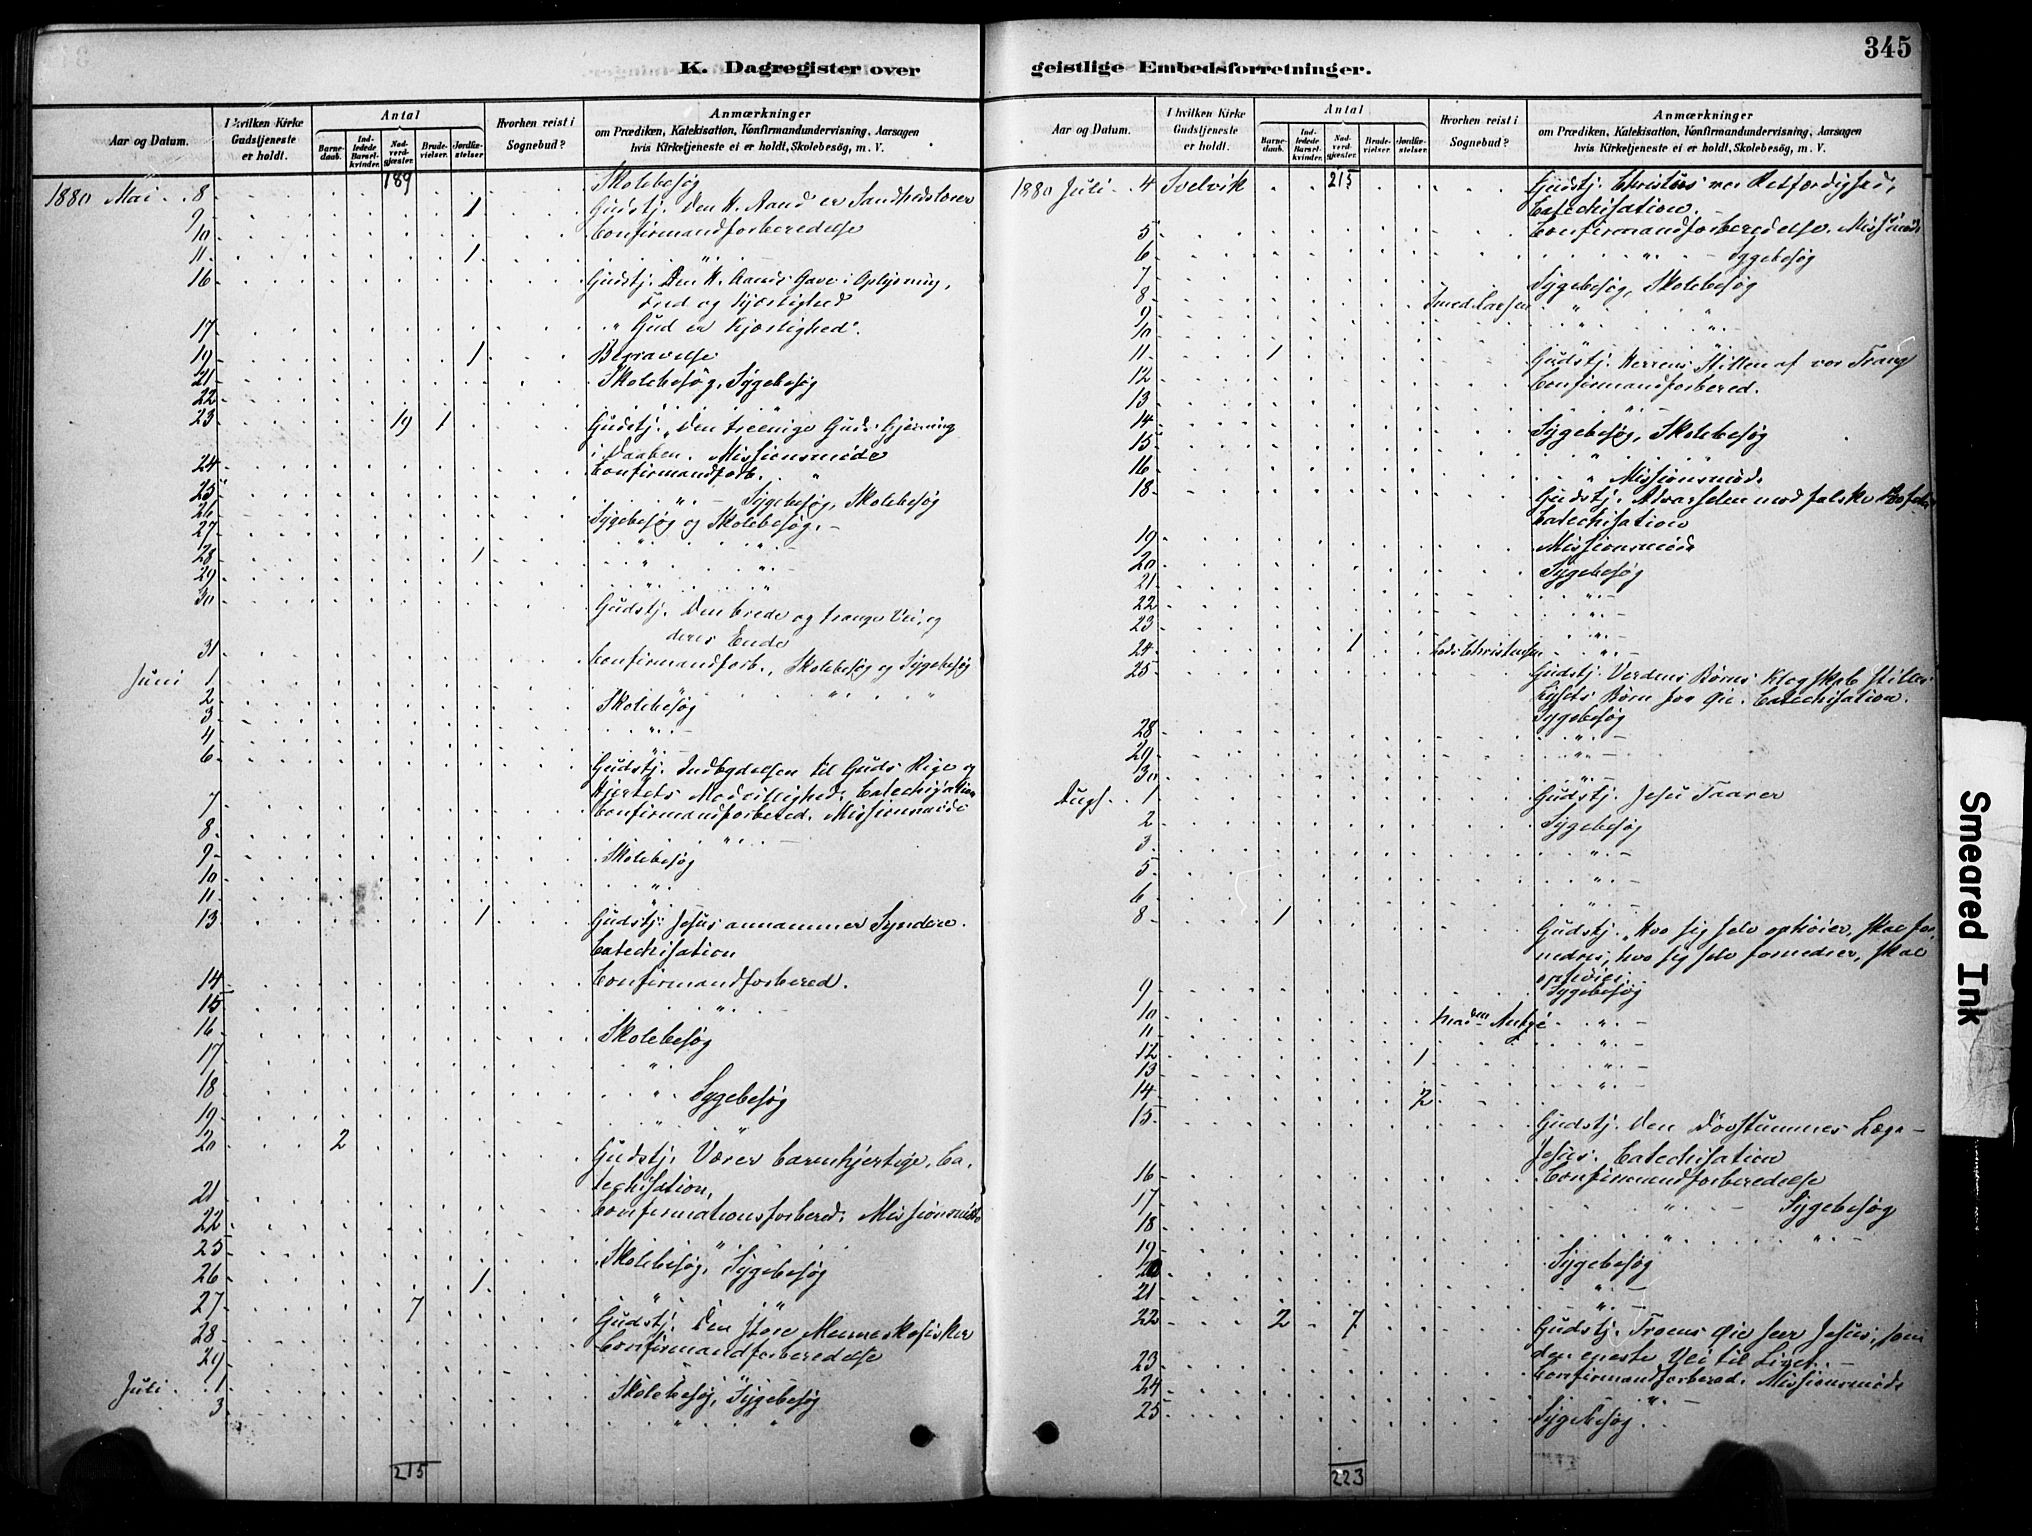 345
K. Dagregister over
Aar og Datum.
I hvilken Kirke Gudstjeneste er holdt.
Antal
Barnedaab.
Indledede Barselkvinder.
Nadverdgjæster.
Brudevielser.
Jordfæstelser.
Hvorhen reist i Sognebud?
Anmærkninger
om Prædiken, Katekisation, Konfirmandundervisning, Aarsagen
hvis Kirketjeneste ei er holdt, Skolebesög, m. V.
189
1880 Mai 8 Skolebesøg
9 1 Gudstj. Den H. Aand er Sandhedslærer
10 Confirmandforberedelse
11 1 "
16 Gudstj. Den H. Aands Gave: Oplysning,
Fred og Kjærlighed
17 " Gud er Kjærlighed".
19 1 Begravelse
21 Skolebesøg, Sygebesøg
22 " "
23 19 1 Gudstj. "Den treenige Guds Gjerning
i Daaben. Missionsmøde
24 Confirmandforb. "
25 " - Sygebesøg, Skolebesøg
26 Sygebesøg og Skolebesøg. -
27 " " -
28 1 " " -
29 " "
30 Gudstj. Den brede og trange Vei, og
deres Ende
31 Confirmandforb., Skolebesøg og Sygebesøg
Juni 1 " " "
2 Skolebesøg
3 " -
4 "
6 Gudstj. Indbydelsen til Guds Rige og
Hjertets Modvillighed. Catechisation
7 Confirmandforbered. Missionsmøde
8 " -
9 Skolebesøg
10 "
11
13 1 Gudstj. Jesus annammer Syndere.
Catechisation
14 Confirmandforbered.
15 " -
16 Skolebesøg
17 "
18 " Sygebesøg
19 " "
20 2 Gudstj. Værer barmhjertige. Ca-
techisation.
21 Confirmationsforbered. Missionsmøde
22 "
25 Skolebesøg, Sygebesøg
26 1 " "
27 7 Gudstj. Den store Menneskefisker
28 Confirmandforberedelse
29 "
Juli 1 Skolebesøg, Sygebesøg
3 " "
215
geistlige Embedsforretninger.
Aar og Datum.
I hvilken Kirke Gudstjeneste er holdt.
Antal
Barnedaab.
Indledede Barselkvinder.
Nadverdgjæster.
Brudevielser.
Jordfæstelser.
Hvorhen reist i Sognebud?
Anmærkninger
om Prædiken, Katekisation, Konfirmandundervisning, Aarsagen
hvis Kirketjeneste ei er holdt, Skolebesög, m. V.
215
1880 Juli 4 Svelvik Gudstj. Christus vor Retfærdighed,
Catechisation.
5 Confirmandforberedelse. Missionsmøde
6 " - Sygebesøg
7 Sygebesøg, Skolebesøg
8 Larsen " "
9 " " -
10 " "
11 1 Gudstj. Herrens Stillen af vor Trang
12 Confirmandforbered.
13 " -
14 Sygebesøg, Skolebesøg
15 " "
16 " Missionsmøde
18 Gudstj. Advarselen mod falske Profeter
Catechisation
19 Missionsmøde
20 Sygebesøg
21 " -
22 " -
23 " -
24 1 Christensen " -
25 Gudstj. Verdens Børns Klogskab stilles
Lysets Børn for Øie. Catechisation.
28 Sygebesøg
29 " -
30 " -
Augs. 1 Gudstj. Jesu Taarer
2 Sygebesøg
3 " -
5 " -
6 " -
8 1 Gudstj. "Hvo sig selv ophøier, skal for-
nedres; hvo sig selv fornedrer, skal
ophøies.
9 Sygebesøg
10 " -
11 " -
12 1 " -
13 " -
14 2
15 Gudstj. Den Døvstummes Læge -
Jesus. Catechisation
16 Confirmandforberedelse
17 " - Sygebesøg
18 " " -
19 Sygebesøg
20 " -
21 " -
22 2 7 Gudstj. Troens Øie seer Jesus, som
den eneste Vei til Livet. -
23 Confirmandforbered. Missionsmøde
24 " -
25 Sygebesøg.
223
Smeared Ink